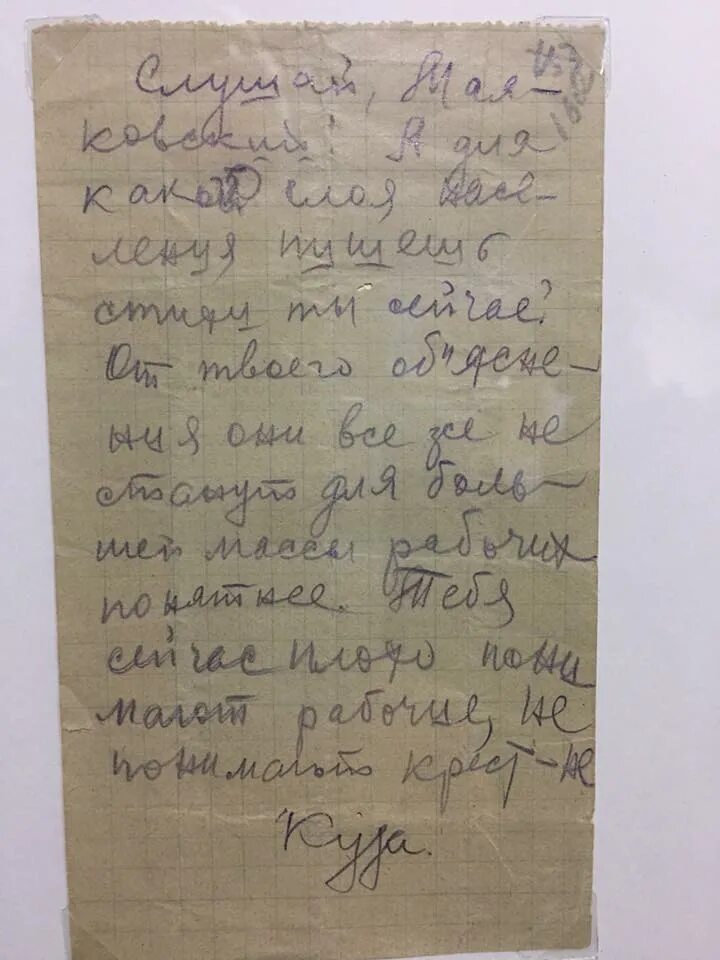 Слушай, Мая-
ковский! А для
какого слоя насе-
ления пишешь
стихи ты сейчас?
От твоего об"ясне-
ния они все же не
станут для боль-
шей массы рабочих
понятнее. Тебя
сейчас плохо пони
мают рабочие, не
понимают крест-не
Куза.